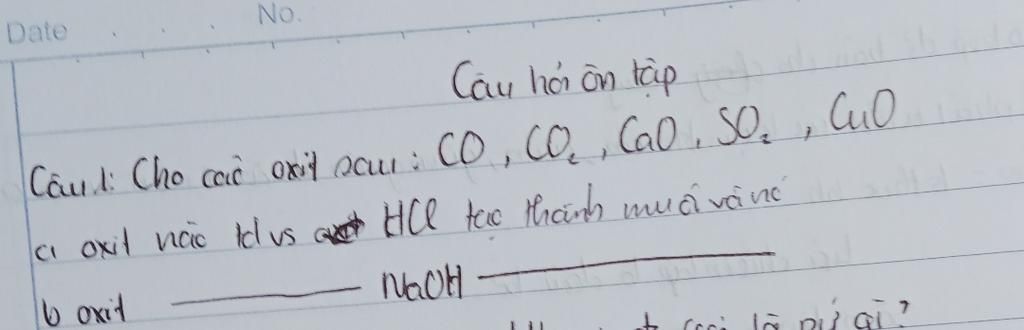 Date No.
Câu hỏi ôn tập
Câu 1: Cho các oxit sau: CO, CO₂, CaO, SO₂, CuO
a oxit nào td vs HCl tạo thành muối và nc
b oxit ——— NaOH ———
là pứ gì?